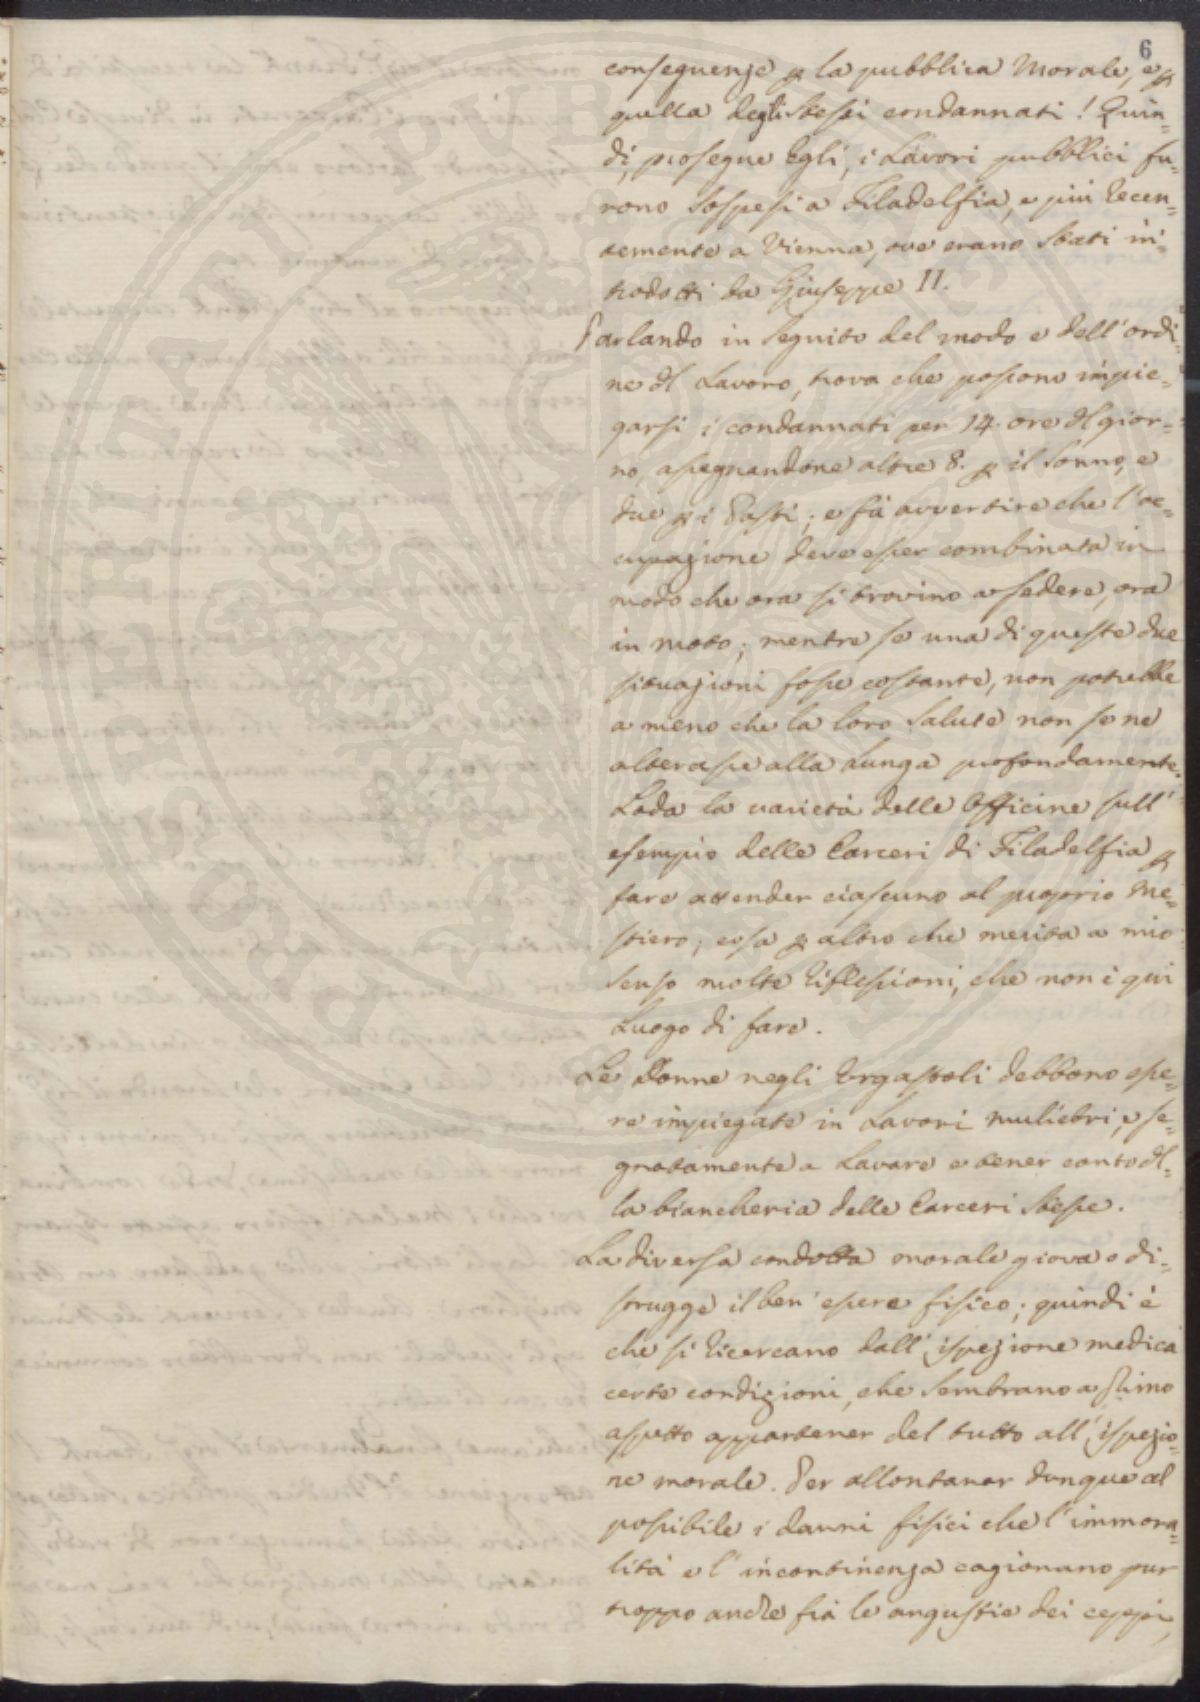 6
conseguenze p la pubblica Morale, e p
quella degli stessi condannati! Quin=
di, prosegue Egli, i Lavori pubblici fu=
rono sospesi a Filadelfia, e più recen=
temente a Vienna, ove erano stati in=
trodotti da Giuseppe II.
Parlando in seguito del modo e dell'ordi=
ne dl Lavoro, trova che possono impie=
garsi i condannati per 14. ore dl gior=
no, assegnandone altre 8. p il sonno, e
due p i Pasti; e fà avvertire che l'oc=
cupazione deve esser combinata in
modo che ora si trovino a sedere, ora
in moto; mentre se una di queste due
situazioni fosse costante, non potrebbe
a meno che la loro salute non se ne
alterasse alla lunga profondamente.
Loda la varietà delle Officine sull'
esempio delle Carceri di Filadelfia p
fare attender ciascuno al proprio Me=
stiero; cosa p altro che merita a mio
senso molte riflessioni, che non è qui
Luogo di fare.
Le Donne negli Ergastoli debbono esse=
re impiegate in Lavori muliebri, e se=
gnatamente a Lavare e tener conto dl=
la biancheria delle Carceri stesse.
La diversa condotta morale giova o di=
strugge il ben' essere fisico; quindi è
che si ricercano dall' ispezione medica
certe condizioni, che sembrano a primo
aspetto appartener del tutto all' ispezio=
ne morale. Per allontanar dunque al
possibile i danni fisici che l'immora=
lità e l'incontinenza cagionano pur
troppo anche frà le angustie dei ceppi,
PROPRIETATI PUBL